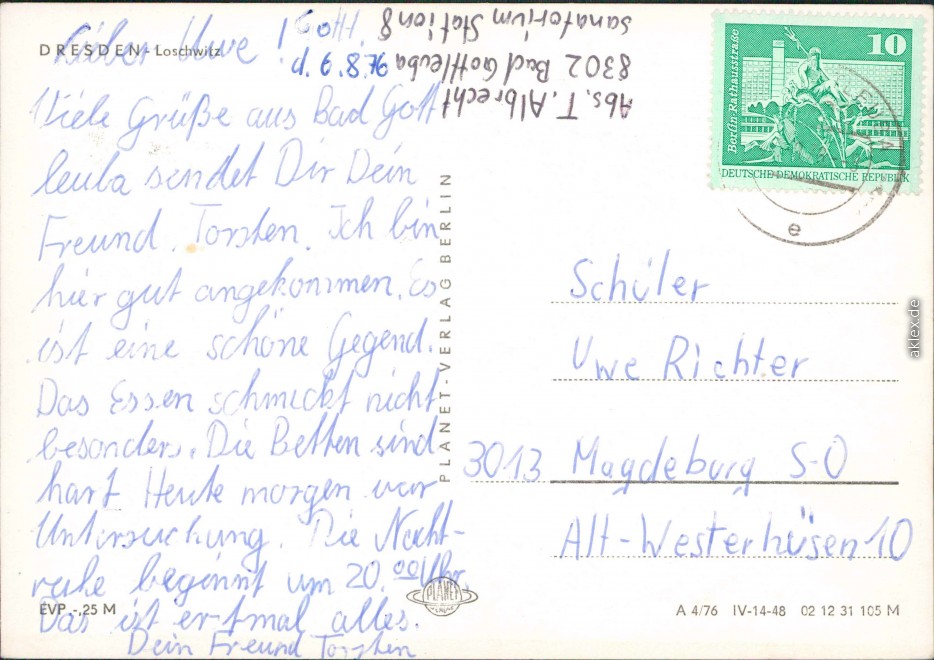 DRESDEN-Loschwitz
Lieber Uwe!
Viele Grüße aus Bad Gott
leuba sendet Dir Dein
Freund. Torsten. Ich bin
hier gut angekommen. Es
ist eine schöne Gegend.
Das Essen schmeckt nicht
besonders. Die Betten sind
hart. Heute morgen war
Untersuchung. Die Nacht-
ruhe beginnt um 20.00 Uhr.
Das ist erstmal alles.
Dein Freund Torsten
Abs. T. Albrecht
8302 Bad Gottleuba
Sanatorium Station 8
PLANET-VERLAG BERLIN
10
Berlin Rathausstraße
DEUTSCHE DEMOKRATISCHE REPUBLIK
e
Schüler
Uwe Richter
3013 Magdeburg S-O
Alt-Westerhüsen 10
EVP -,25 M
PLANET
A 4/76 IV-14-48 02 12 31 105 M
aklex.de